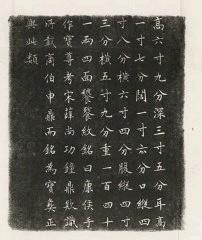 高六寸九分深三寸五分耳高
一寸七分闊一寸六分口縱四
寸八分橫六寸四分腹縱四寸
三分橫五寸九分重一百四十
一兩四面饕餮紋銘曰康侯丰
作寶尊考宋薛尚功鐘鼎款識
所載商伯申鼎而銘為寶彝正
與此類